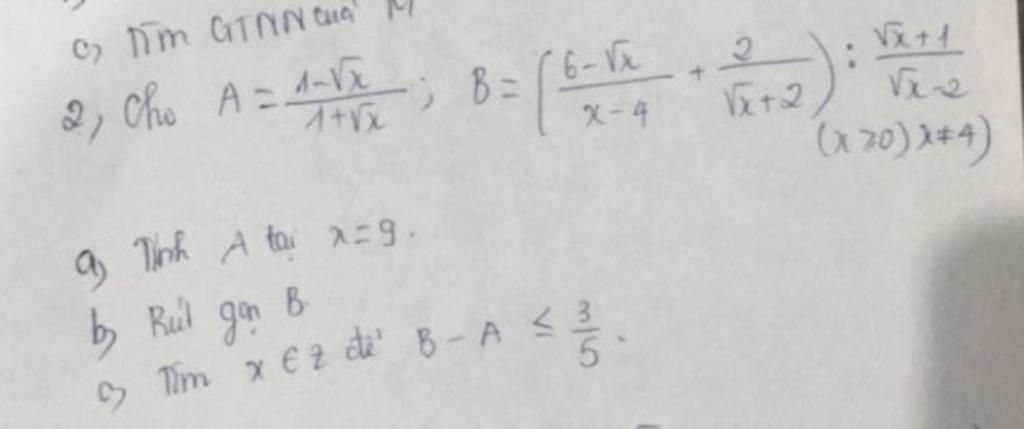 c, Tìm GTNN của M
2, Cho A = \frac{1-√x}{1+√x} ; B = ( \frac{6-√x}{x-4} + \frac{2}{√x+2} ) : \frac{√x+1}{√x-2}
(x ≥ 0) x ≠ 4)
a, Tính A tại x = 9.
b, Rút gọn B
c, Tìm x ∈ Z để B - A ≤ \frac{3}{5} .